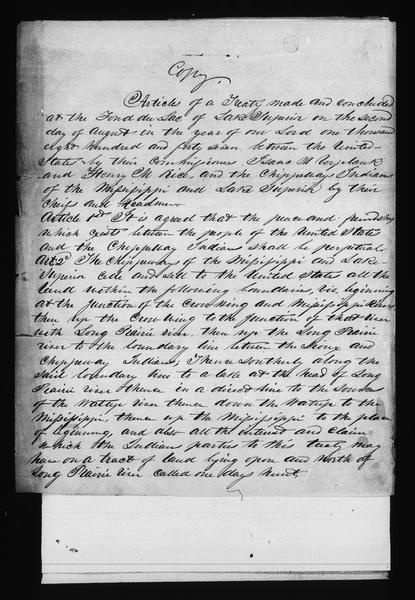 Copy.
Articles of a Treaty made and concluded
at the Fond du Lac of Lake Superior on the second
day of August in the year of our Lord one thousand
eight hundred and forty seven between the United
States by their Commissioners Isaac A Verplank
and Henry M Rice and the Chippeway Indians
of the Missisippi and Lake Superior by their
Chiefs and Headmen
Article 1st It is agreed that the peace and friendship
which exists between the people of the United States
and the Chippeway Indians shall be perpetual.
Art 2d The Chippeways of the Missisippi and Lake
Superior cede and sell to the United States all the
land within the following boundaries, viz, beginning
at the junction of the Crow Wing and Missisippi Rivers
then up the Crow Wing to the junction of that river
with Long Prairie river, then up the Long Prairie
river to the boundary line between the Sioux and
Chippeway Indians, thence Southerly along the
said boundary line to a lake at the head of Long
Prairie river thence in a direct line to the Source
of the Wattap river thence down the Wattap to the
Missisippi, thence up the Missisippi to the place
of beginning, and also all the interest and claim
which the Indians parties to this treaty may
have on a tract of land lying upon and North of
Long Prairie river called one days hunt.